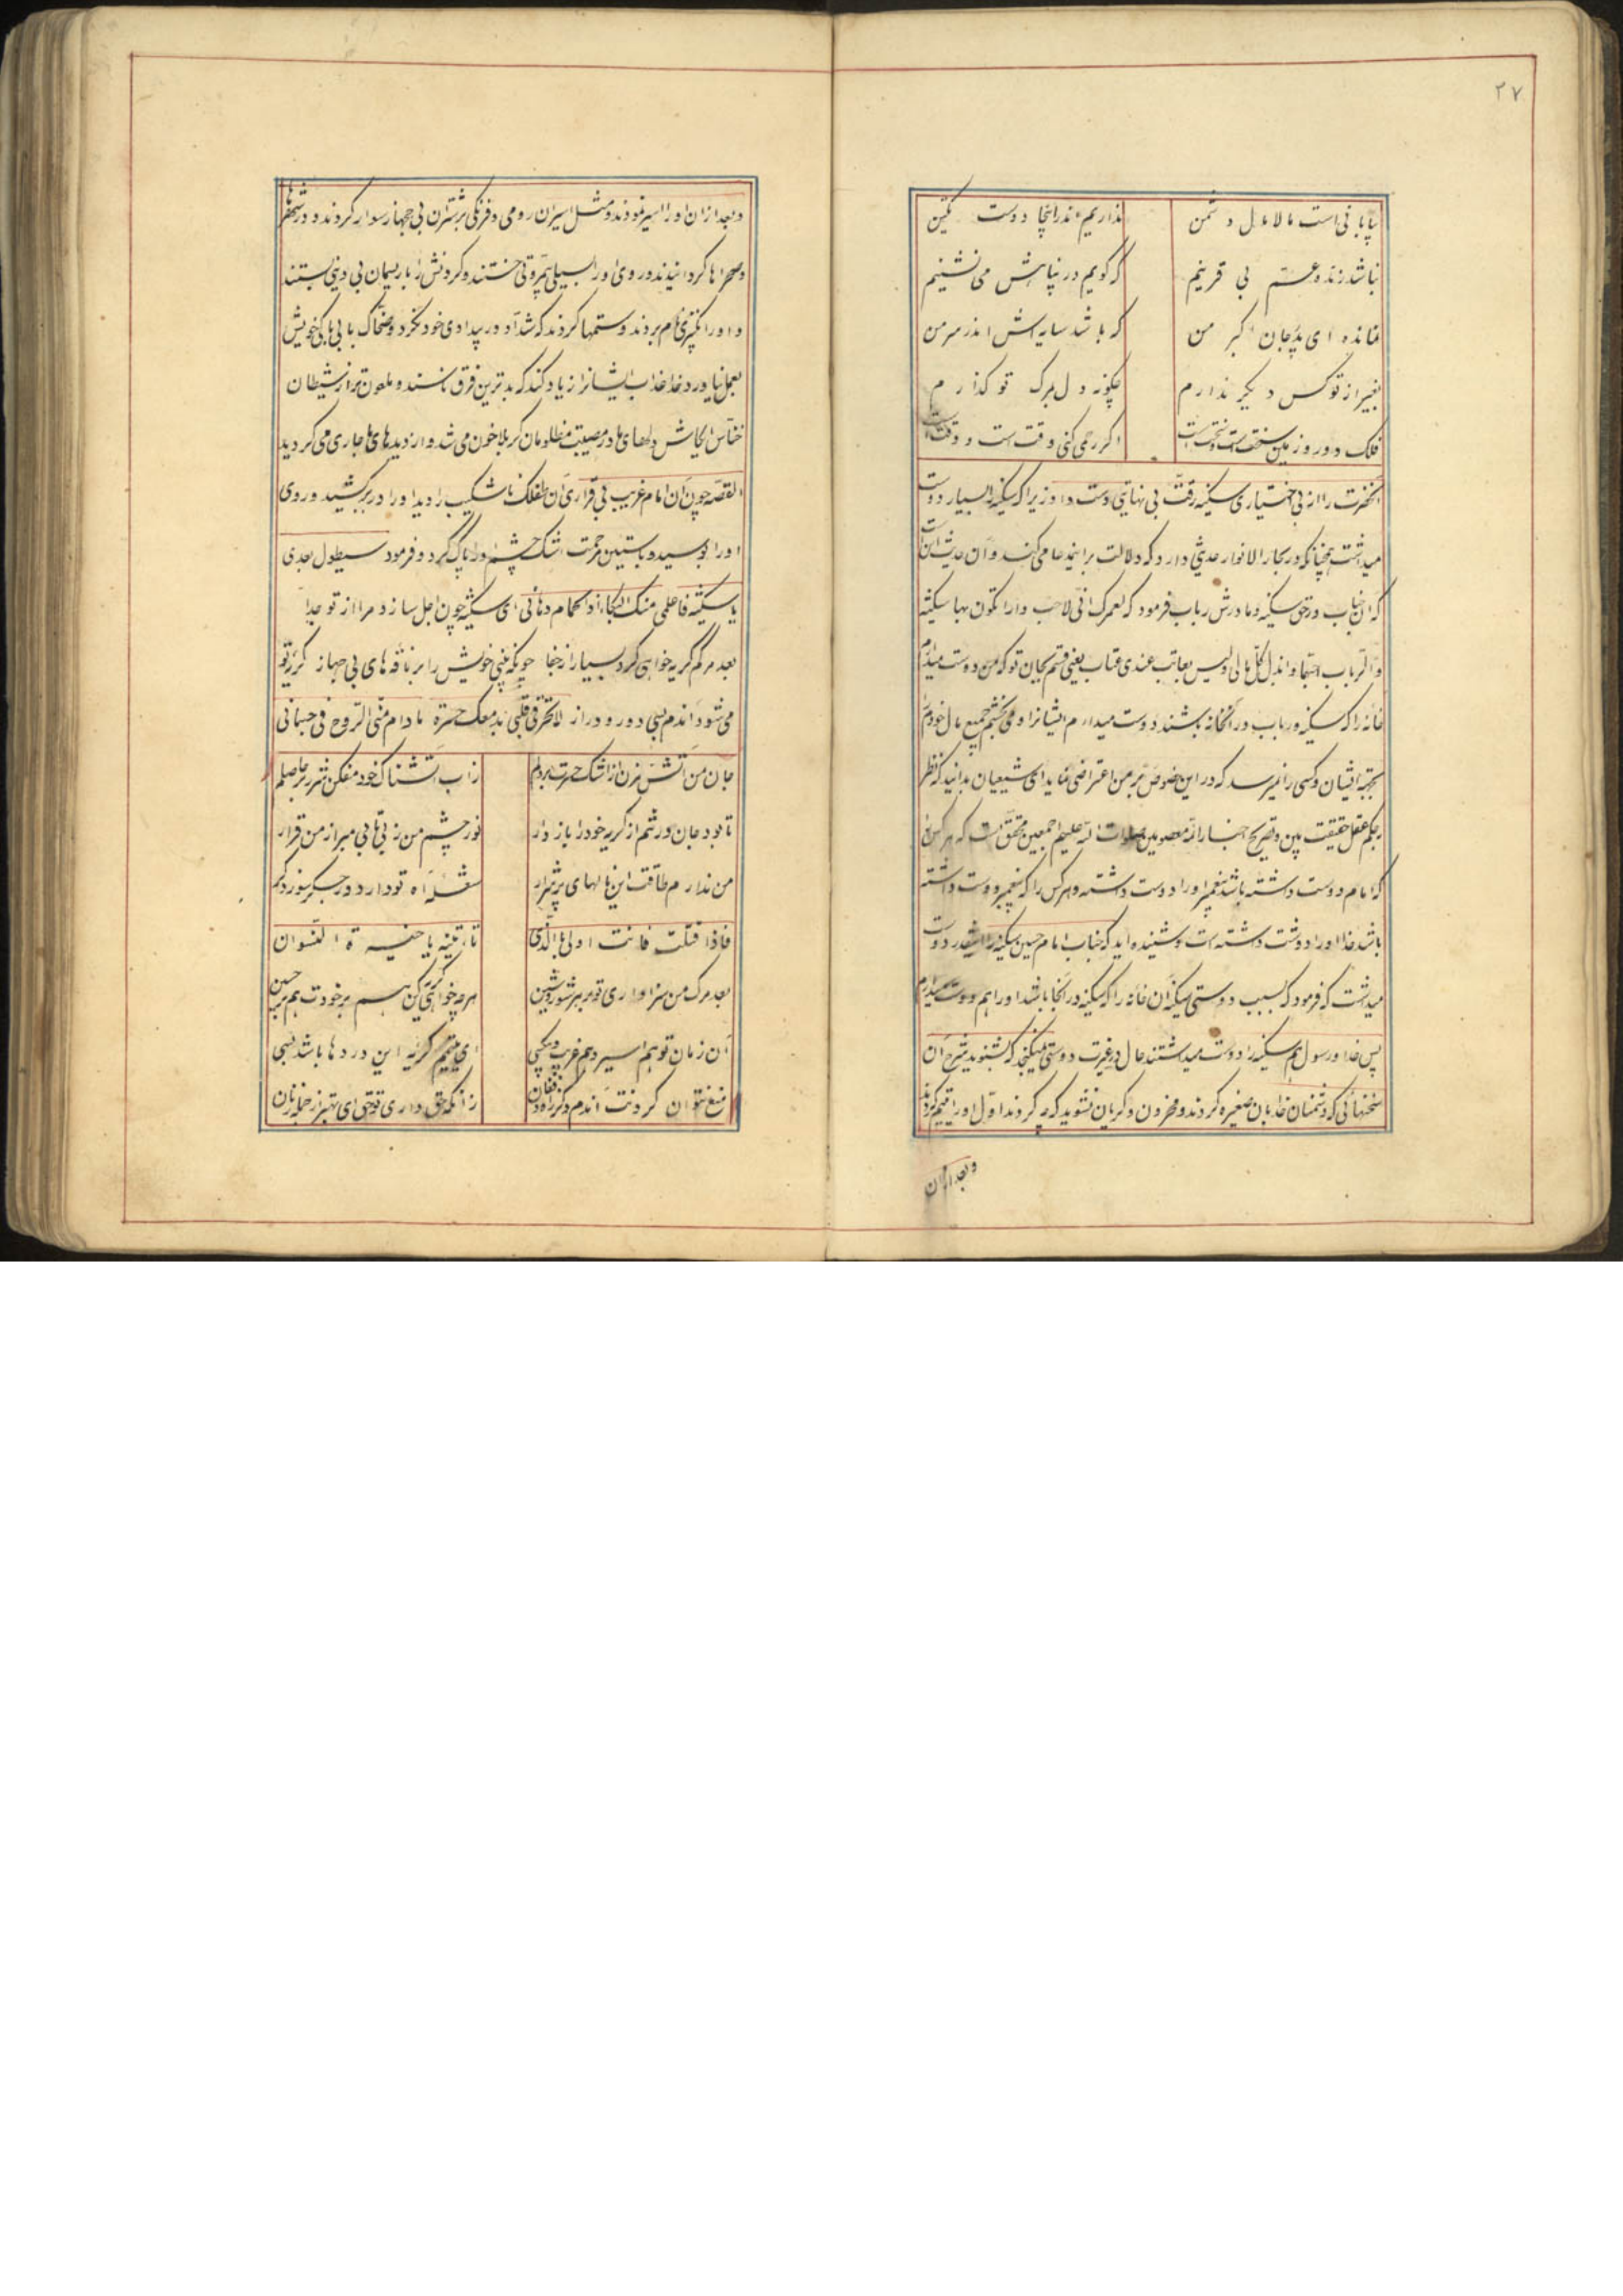 ۲۷
بیابانی است مالامال دشمن نداریم اندر اینجا دوست یکتن
نباشد زنده عمّ بی قرینم که گویم در پناهش می‌نشینم
نمانده ای پدرجان اکبر من که باشد سایه‌اش اندر سر من
بغیر از تو کس دیگر ندارم چگونه دل بمرگ تو گذارم
فلک دور و زمین سختست سختست اگر رحمی کنی وقت است و وقتست
انحضرت را از بی اختیاری سکینه رقّت بی نهایتی دست داد زیرا که سکینه را بسیار دوست
میداشت چنانکه در بحار الانوار حدیثی دارد که دلالت براین مدعا می‌کند و آن حدیث اینست
که ان جناب در حق سکینه و مادرش رباب فرمود که لعمرک انّی لاحبّ دارا تکون بها سکینة
والرّباب احبّهما وابذل کلّ مالی ولیس بعاتب عندی عتاب یعنی قسم بجان تو که من دوست میدارم
خانه را که سکینه و رباب در آنخانه باشند دوست میدارم ایشانرا و می‌بخشم جمیع مال خود را
بجهة ایشان و کسی را نمیرسد که در این خصوص بر من اعتراضی نماید ای شیعیان بدانید که نظر
بحکم عقل حقیقت بین و تصریح اخبار ائمه معصومین صلوات الله علیهم اجمعین محقّق است که هر کس را
که امام دوست داشته باشد پیغمبر اورا دوست داشته و هر کس را که پیغمبر دوست داشته
باشد خدا اورا دوست داشته است و شنیده‌اید که جناب امام حسین سکینه را انقدر دوست
میداشت که فرمود که بسبب دوستی سکینه آن خانه را که سکینه در آنجا باشد اورا هم دوست میدارم
پس خدا و رسول هم سکینه را دوست میداشتند حال در غیرت دوستی میگنجد که بشنوید شرح آن
سخنهائی که دشمنان خدا بان صغیره کردند و محزون و گریان نشوید که چه کردند اوّل اورا یتیم کردند
وبعد ازان
وبعد ازان اورا اسیر نمودند و مثل اسیران رومی و فرنگی بر شتران بی جهاز سوار کردند و در شهرها
و صحراها گردانیدند و روی اورا بسیلی بمروّتی خستند و گردنش را با ریسمان بی دینی بستند
و اورا بکنیزی نام بردند و ستمها کردند که شدّاد در بیدادی خود نکرد و ضحّاک با بی باکی خویش
بعمل نیاورد خدا عذاب ایشانرا زیاد کند که بدترین فرق ناسند و ملعون‌تر از شیطان
خنّاس ایکاش دلهای ما در مصیبت مظلومان کربلا خون می‌شد و از دیدهای ما جاری می‌گردید
القصّه چون آن امام غریب بی قراری ان طفلک ناشکیب را دید اورا در بر کشید و روی
اورا بوسید و باستین مرحمت اشک چشم اورا پاک کرد و فرمود سیطول بعدی
یا سکینة فاعلمی منک البکاء اذا الحمام دهانی ای سکینه چون اجل سازد مرا از تو جدا
بعد مرگم گریه خواهی کرد بسیار از جفا چونکه بینی خویش را بر ناقه های بی جهاز گریه تو
می‌شود اندم بسی دور و دراز لا تحرقی قلبی بدمعک حسرة مادام منّی الرّوح فی جسمانی
جان من آتش مزن از اشک حسرت بر دلم زاب آتشناک خود مفکن شرر بر حاصلم
تا بود جان در تنم از گریه خود را باز دار نور چشم من ز بیتابی مبر از من قرار
من ندارم طاقت این نالهای پر شرار شعله آه تو دارد در جگر سوز دگر
فاذا قتلت فانت اولی بالّذی تأتینه یا خیرة النّسوان
بعد مرگ من سزاواری تو بر بر شور و شین هرچه خواهی گریه کن هم بر خودت هم بر حسین
آن زمان تو هم اسیر و هم غریب و بیکسی ای یتیم گریه این دردها باشد بسی
منع نتوان کردنت اندم دگر زاه و فغان زانکه حق داری تو حقّی ای بهتر از خیل زنان